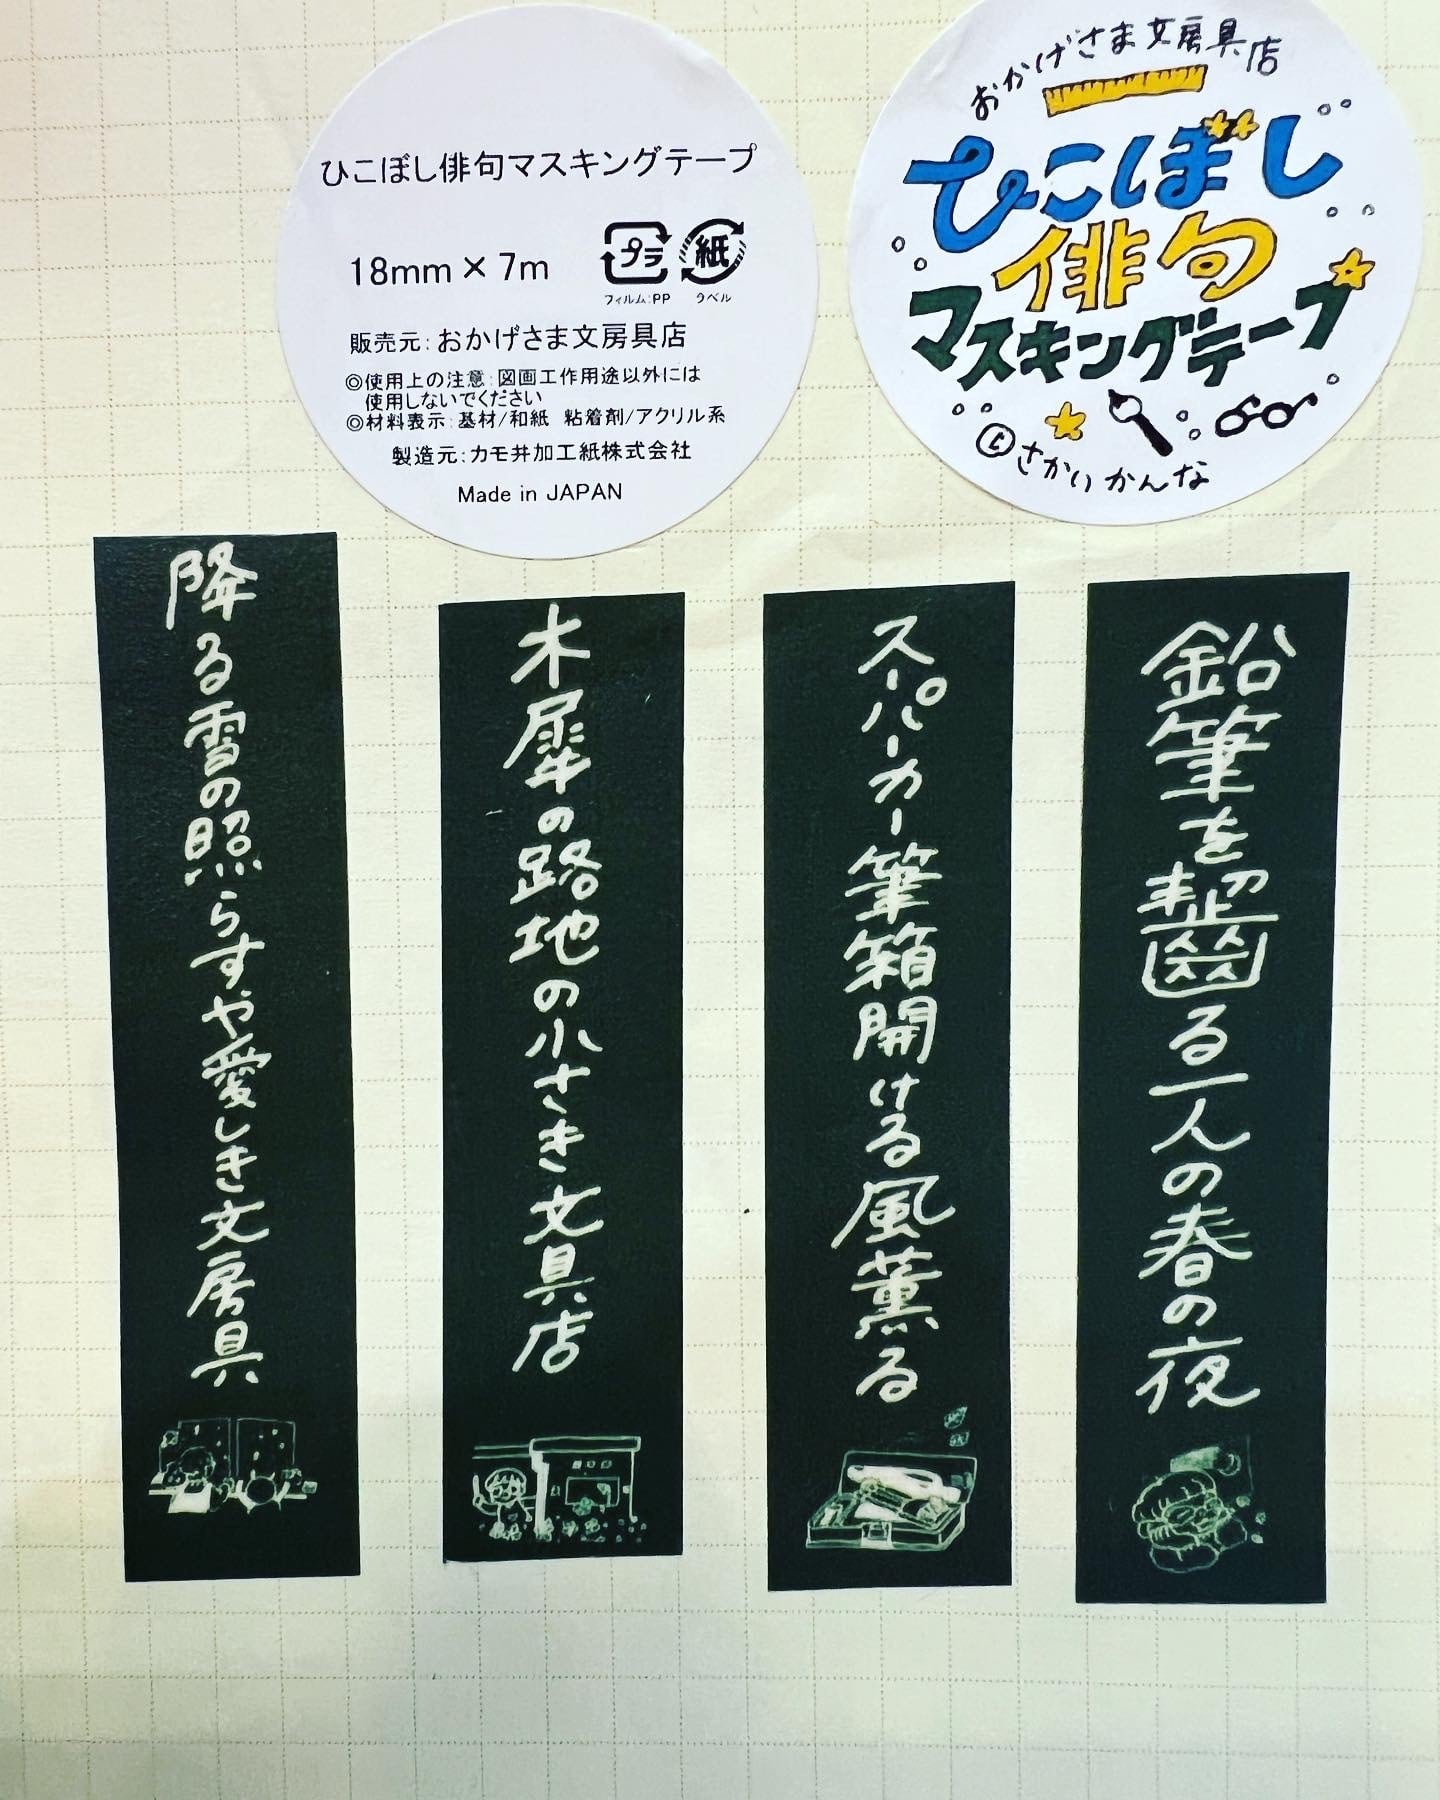 ひこぼし俳句マスキングテープ
18mm×7m
プラ
紙
フィルム:PP
ラベル
販売元:おかげさま文房具店
◎使用上の注意:図画工作用途以外には
使用しないでください
◎材料表示:基材/和紙 粘着剤/アクリル系
製造元:カモ井加工紙株式会社
Made in JAPAN
おかげさま文房具店
ひこぼし
俳句
マスキングテープ
©さかいかんな
鉛筆を齧る一人の春の夜
スーパーカー筆箱開ける風薫る
木犀の路地の小さき文具店
降る雪の照らすや愛しき文房具